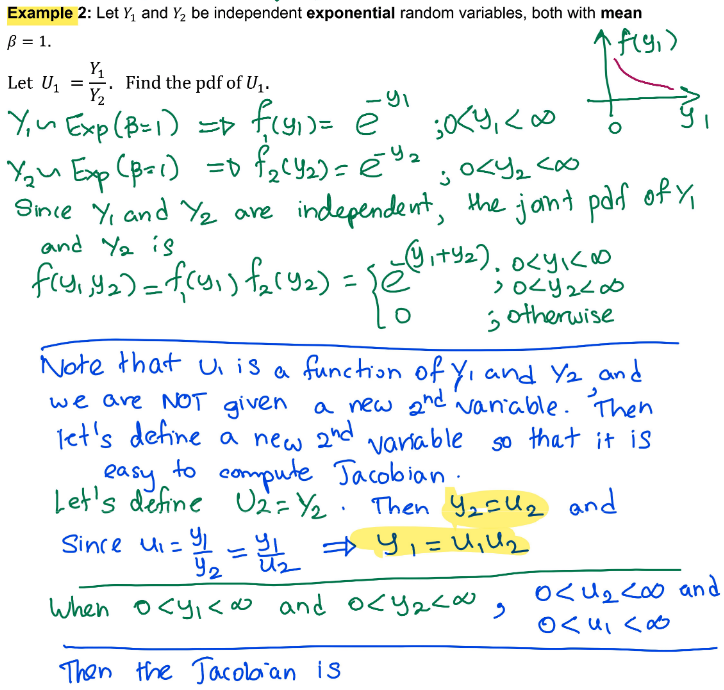 Example 2: Let Y₁ and Y₂ be independent exponential random variables, both with mean
β = 1.
Let U₁ = Y₁/Y₂. Find the pdf of U₁.
f(y₁)
y₁
0
Y₁ ~ Exp(β=1) ⇒ f₁(y₁) = e^(-y₁) ; 0<y₁<∞
Y₂ ~ Exp(β=1) ⇒ f₂(y₂) = e^(-y₂) ; 0<y₂<∞
Since Y₁ and Y₂ are independent, the joint pdf of Y₁
and Y₂ is
f(y₁,y₂) = f₁(y₁) f₂(y₂) = { e^(-(y₁+y₂)) ; 0<y₁<∞
; 0<y₂<∞
0 ; otherwise
Note that U₁ is a function of Y₁ and Y₂, and
we are NOT given a new 2nd variable. Then
let's define a new 2nd variable so that it is
easy to compute Jacobian.
Let's define U₂ = Y₂. Then y₂ = u₂ and
Since u₁ = y₁/y₂ = y₁/u₂ ⇒ y₁ = u₁u₂
When 0<y₁<∞ and 0<y₂<∞, 0<u₂<∞ and
0<u₁<∞
Then the Jacobian is